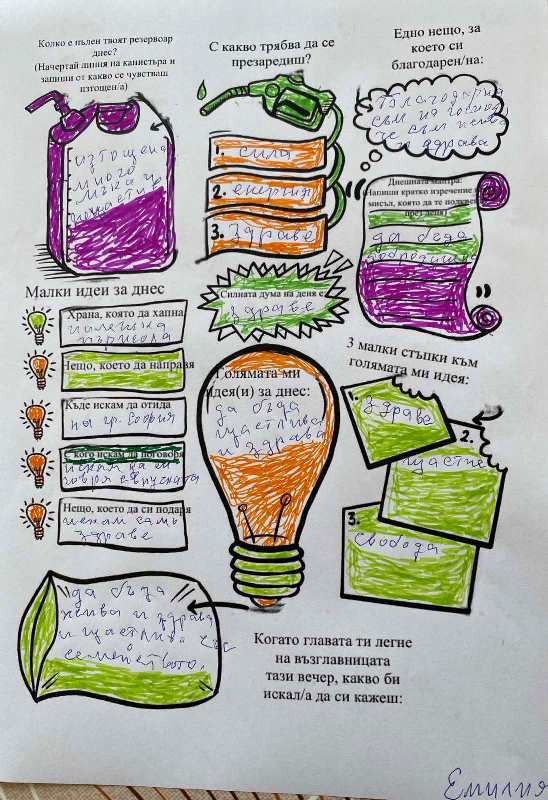 Колко е пълен твоят резервоар
днес?
(Начертай линия на канистъра и
запиши от какво се чувстваш
изтощен/а)
изтощена
много
мъка и
нещастие
С какво трябва да се
презаредиш?
1. сила
2. енергия
3. здраве
Едно нещо, за
което си
благодарен/на:
Благодарна
съм на господ
че съм жива
и здрава
Днешната мантра:
(Напиши кратко изречение и
мисъл, която да те
през деня)
да бъда
Силната дума на деня е
здраве
Малки идеи за днес
Храна, която да хапна
пилешка
пържола
Нещо, което да направя
Къде искам да отида
на гр. София
С кого искам да поговоря
искам да си
говоря с внучката
Нещо, което да си подаря
искам само
здраве
Голямата ми
идея(и) за днес:
да бъда
щастлива
и здрава
3 малки стъпки към
голямата ми идея:
1. здраве
2.
щастие
3.
свобода
да бъда
жива и здрава
и щастлива със
семейството.
Когато главата ти легне
на възглавницата
тази вечер, какво би
искал/а да си кажеш:
Емилия